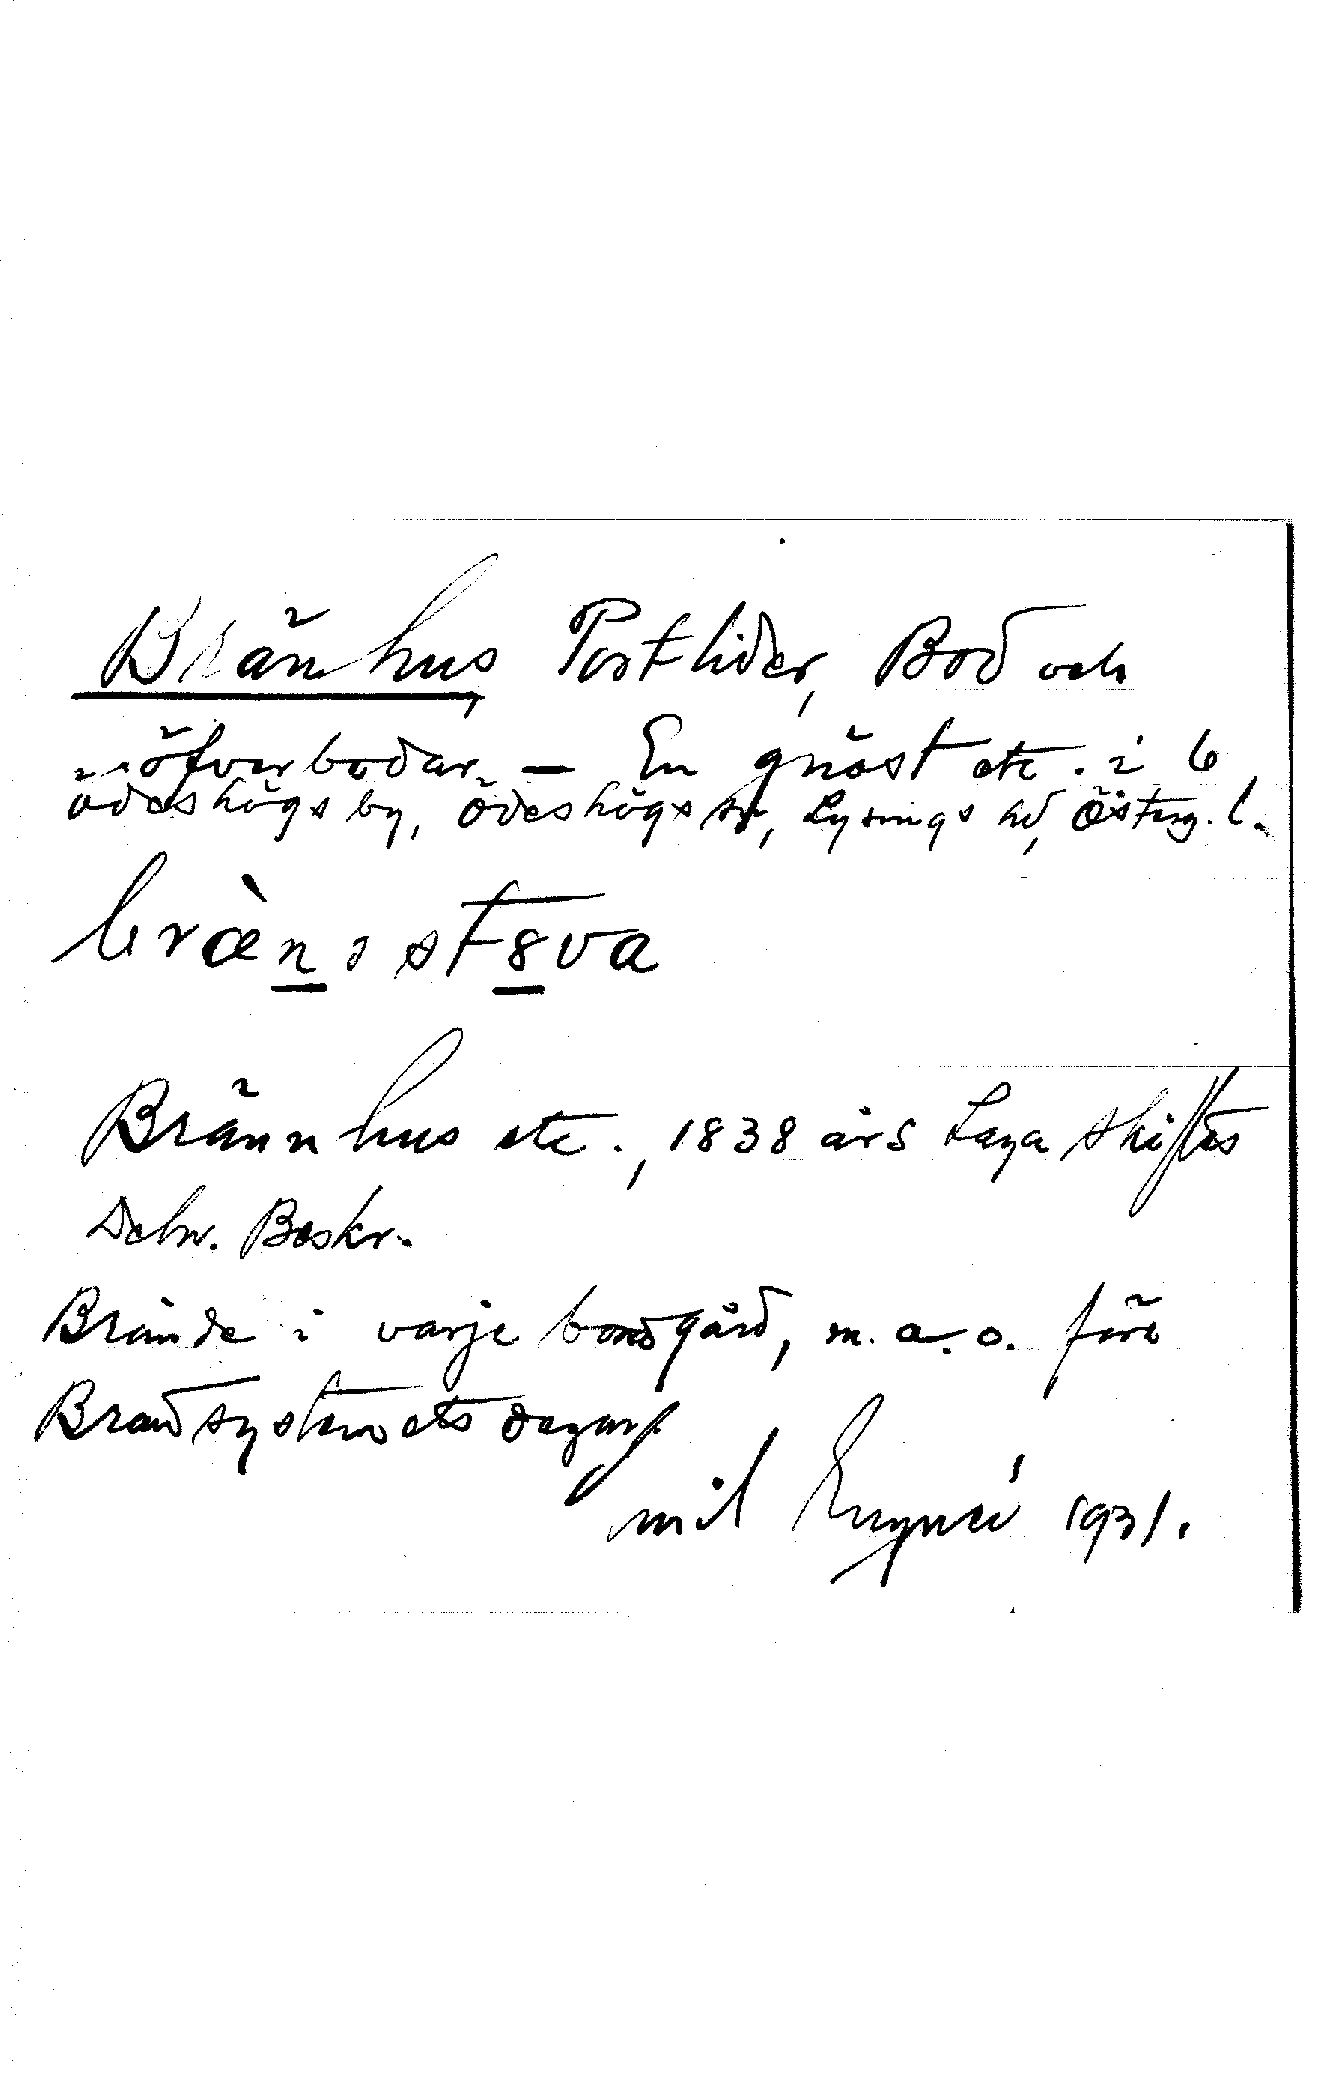 Bränhus, Portlider, Bod och
öfverbodar. — En gnäst etc. i b
ödeshögs by, Ödeshögs sn, Lysings hd, Österg. l.
bræ̀nstuva
Brännhus etc., 1838 års Laga skiftes
Deln. Beskr.
Brände i varje bondgård, m.a.o. före
Brandsystemets dagar.
mil 1931.